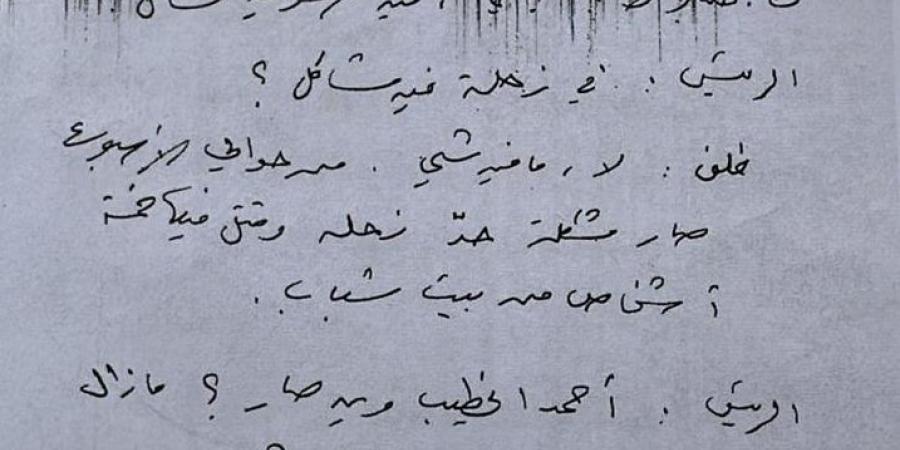 الريّس : في زحلة فيه مشاكل ؟
خلف : لا ، ما فيه شي . من حوالي الأسبوع
صار مشكلة حدّ زحله وقتل فيها خمسة
أشخاص من بيت شباب .
الريّس : أحمد الخطيب وين صار ؟ مازال